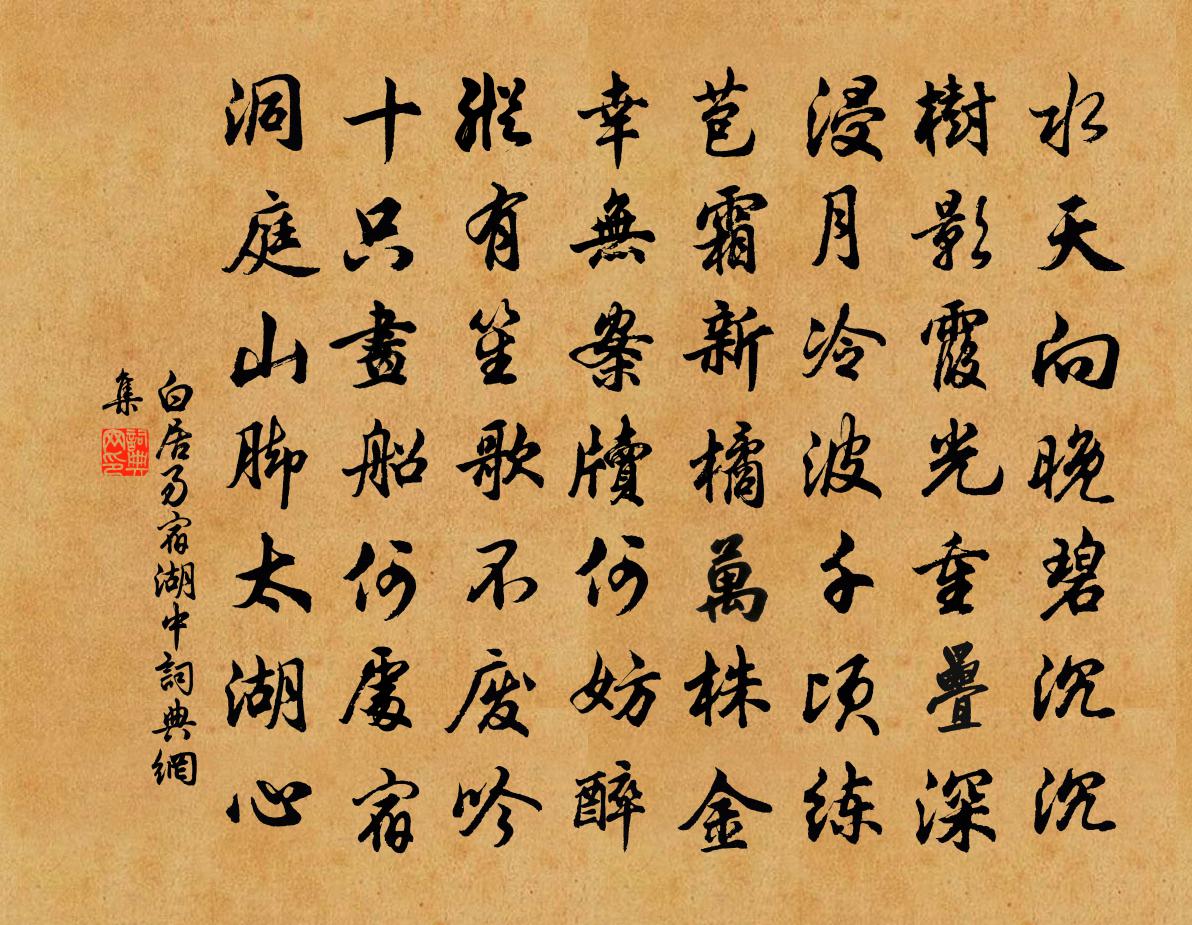 水天向晚碧沉沉
樹影霞光重疊深
浸月冷波千頃练
苞霜新橘萬株金
幸無案牘何妨醉
縱有笙歌不废吟
十只畫船何處宿
洞庭山脚太湖心
白居易宿湖中詞典網
集
詞典
网印